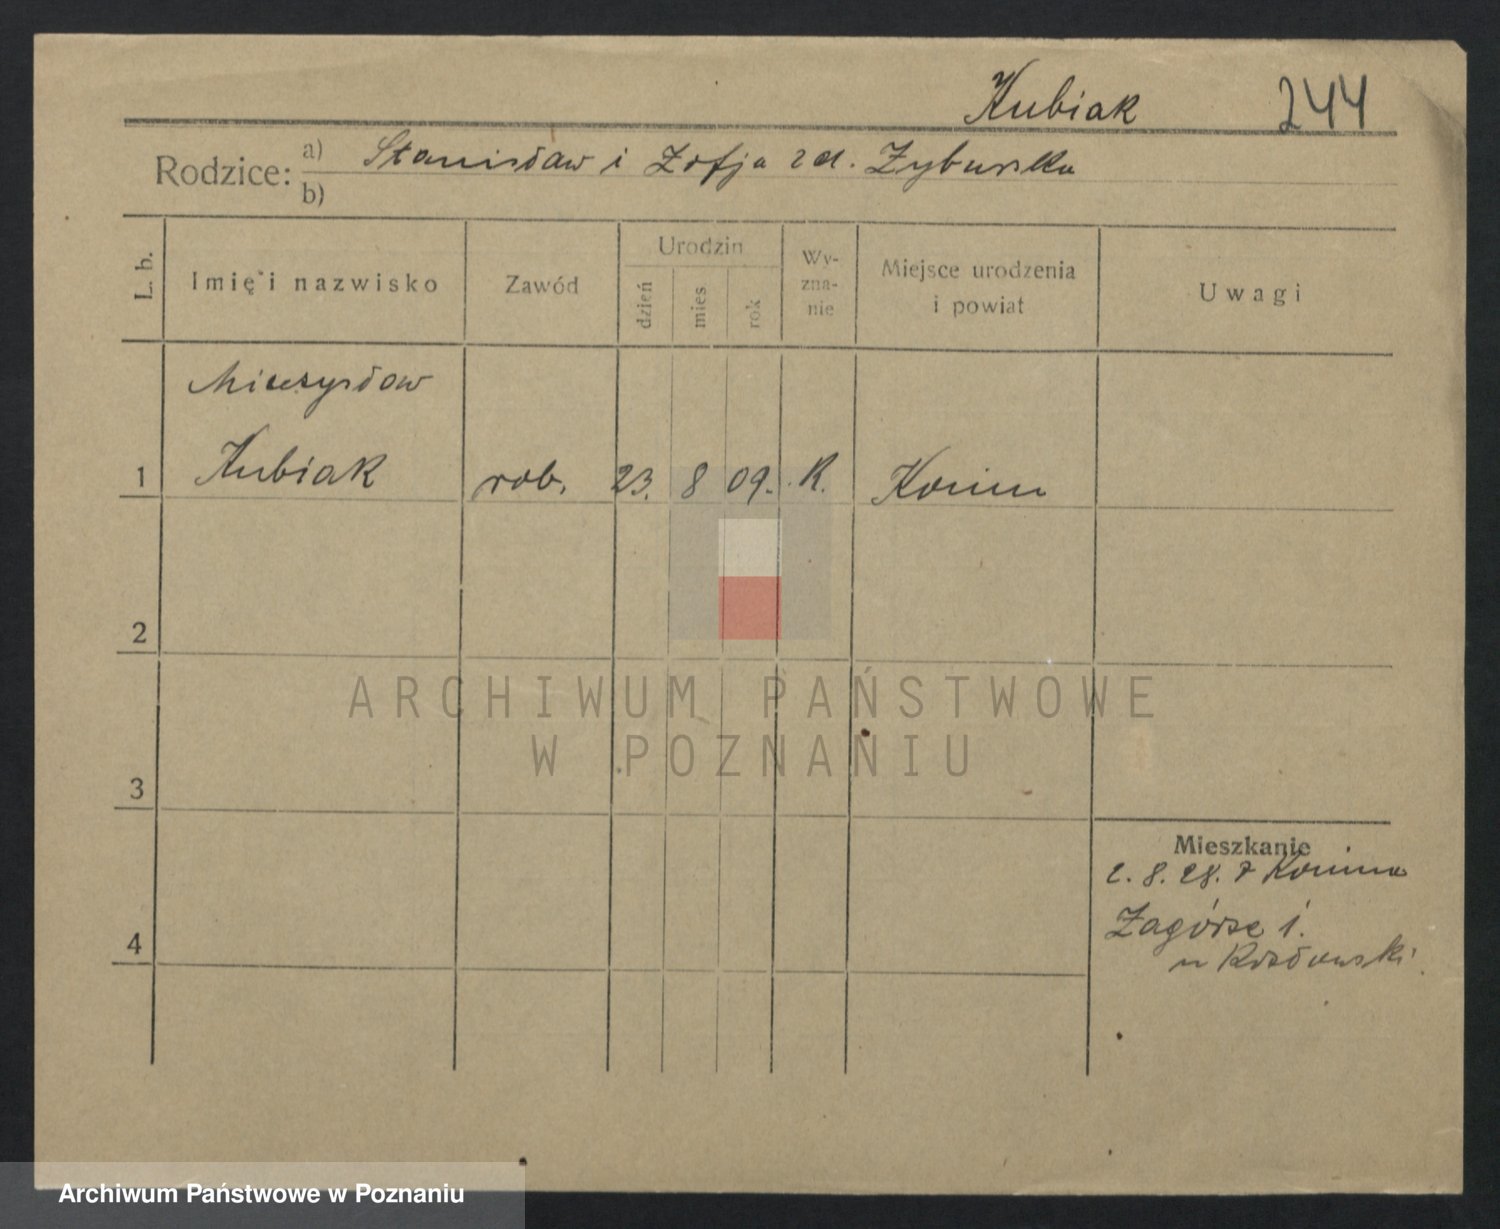 Kubiak 244
Rodzice: a) Stanisław i Zofja zd. Zyburska
b)
L. b. Imię i nazwisko Zawód Urodzin dzień mies rok Wy-zna-nie Miejsce urodzenia i powiat Uwagi
Mieczysław
1 Kubiak rob. 23. 8 09. R. Konin
2
ARCHIWUM PAŃSTWOWE
W POZNANIU
3
Mieszkanie
2. 8. 28. z Konina
Zagórze 1.
4
Archiwum Państwowe w Poznaniu